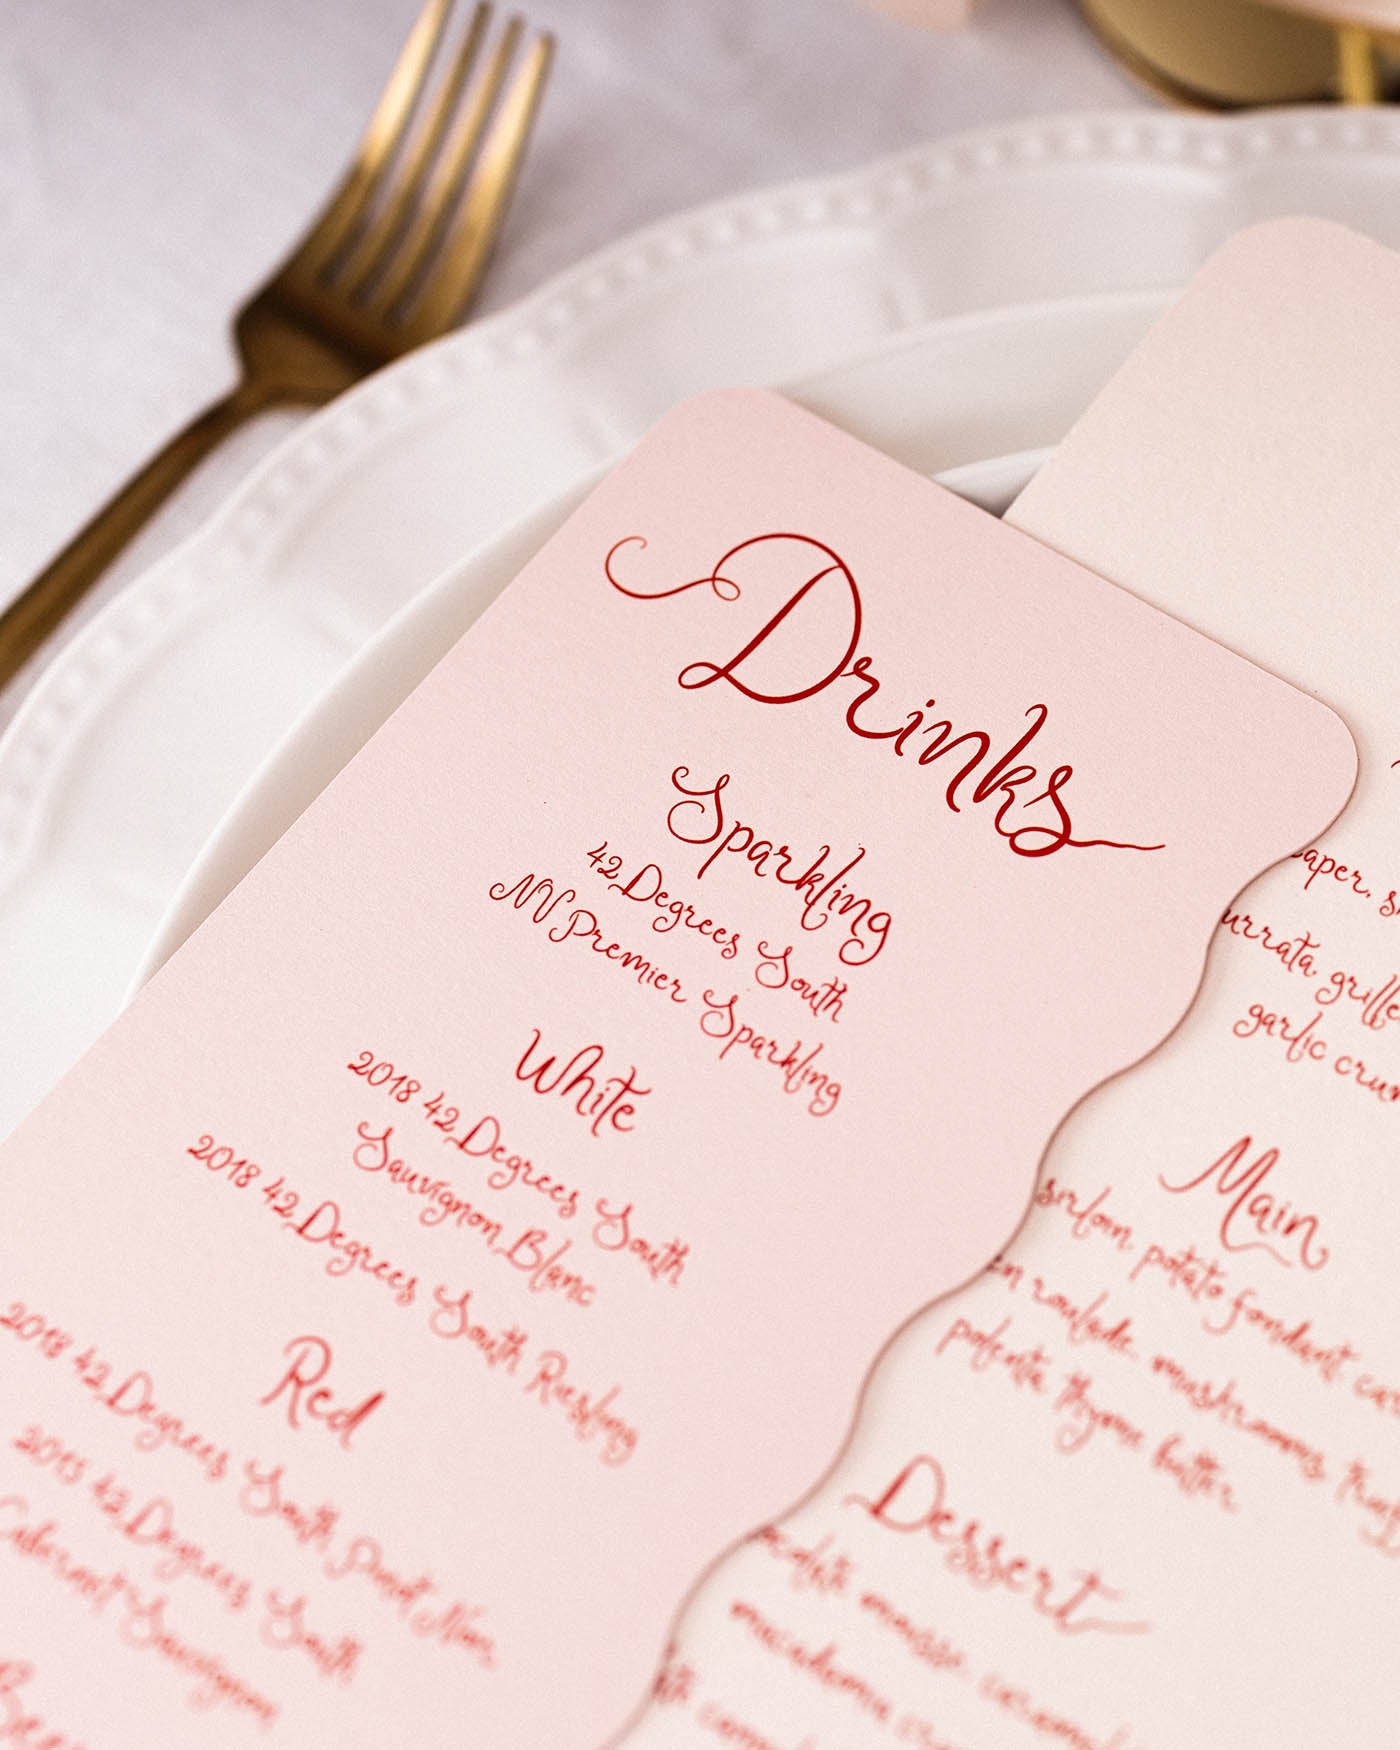 Drinks
Sparkling
42 Degrees South
NV Premier Sparkling
White
2018 42 Degrees South
Sauvignon Blanc
2018 42 Degrees South Riesling
Red
2018 42 Degrees South Pinot Noir
2015 42 Degrees South
Cabernet Sauvignon
grille
garlic crum
Main
sirloin, potato fondant
roulade, mushrooms,
polenta thyme butter
Dessert
mousse, caramel
macadamia